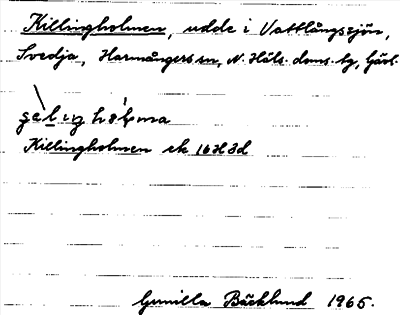 Killingholmen, udde i Vattlångssjön,
Svedja, Harmångers sn, N. Häls. doms. tg, Gävl.
Killingholmen ek 16H3d
Gunilla Bäcklund 1965.